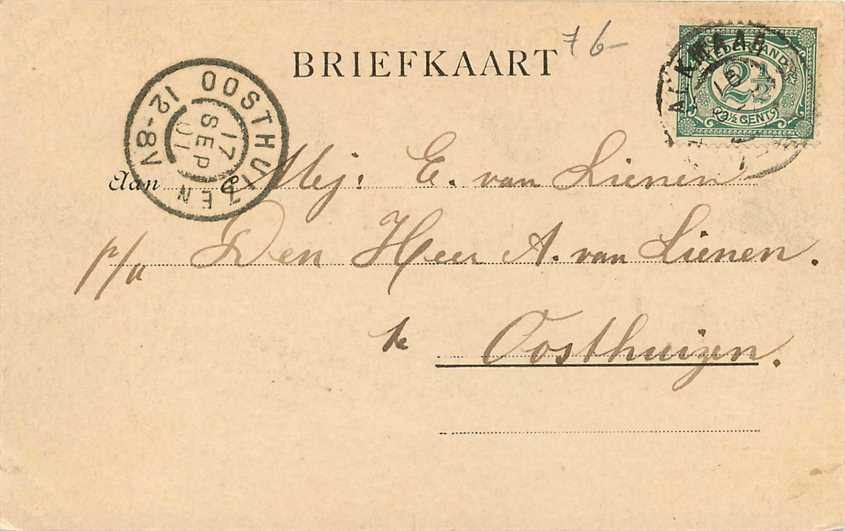 76-
BRIEFKAART
NEDERLAND
2½
2½ CENT
ALKMAAR
OOSTHUIZEN
17
SEP
01
12-8V
Aan Mej: E. van Lienen
p/a Den Heer A. van Lienen.
te Oosthuizen.